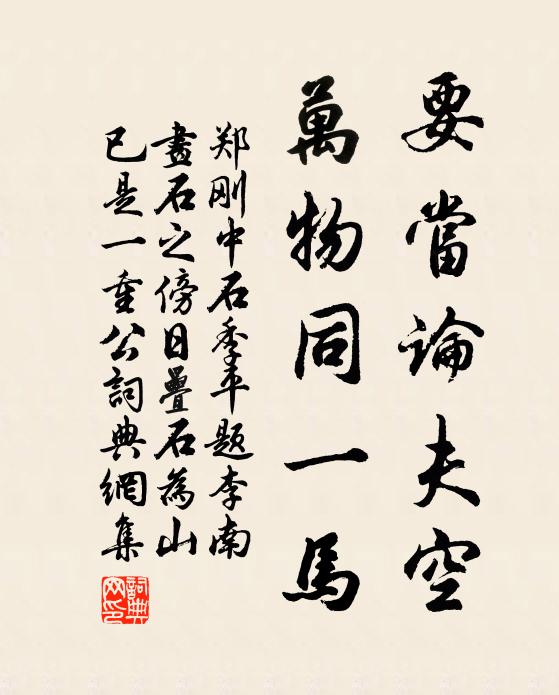 要當論夫空
萬物同一馬
郑刚中石季平题李南
畫石之傍日疊石為山
已是一重公詞典網集
詞典網印